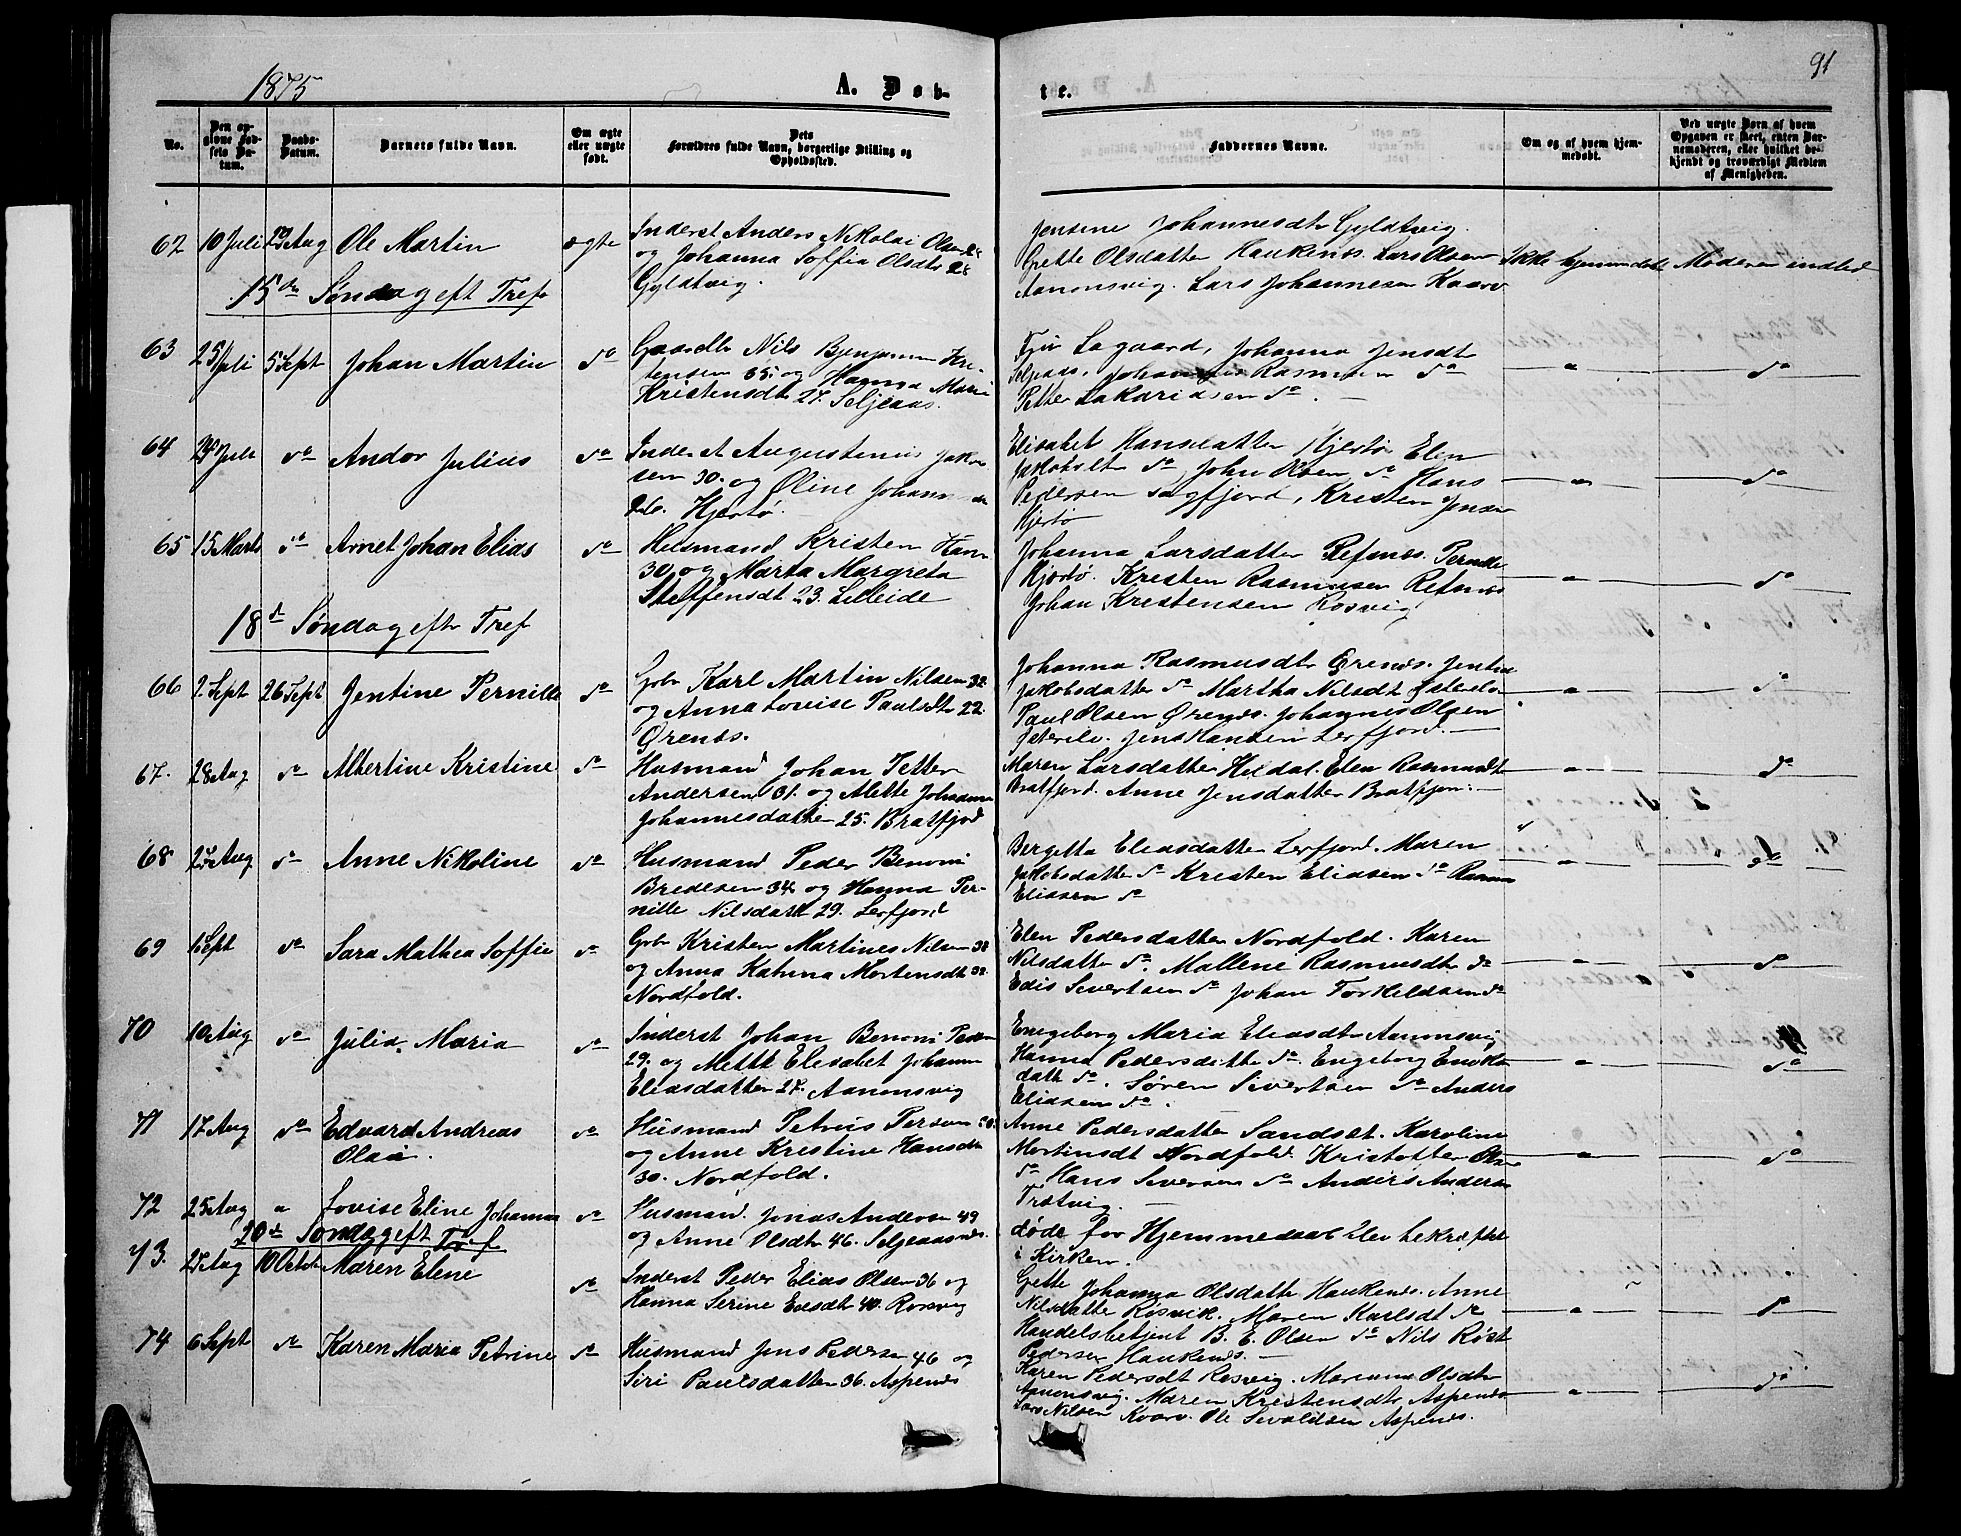 1875
A. Døb-
te.
91
No.
Den opgivne Fødsels Datum.
Daabs-Datum.
Barnets fulde Navn.
Om ægte eller uægte født.
Dets Forældres fulde Navn, borgerlige Stilling og Opholdssted.
Faddernes Navne.
Om og af hvem hjemmedøbt.
Ved uægte Børn af hvem Opgaven er skeet, enten Barnemoderen, eller hvilket bekjendt og troværdigt Medlem af Menigheden.
62 10 Juli Aug Ole Martin ægte
Inderst Anders Nikolai Olsen
og Johanna Soffia Olsdtr
Gyldtvig.
Jensine Johannesdtr Gyldtvig.
Grette Olsdatter Haukenes. Lars Olsen
Aanonsvig. Lars Johannesen Kaarv
Ikke hjemmedøbt Moderen indled
15de Søndag eft Tref
63 25 Juli 5 Sept Johan Martin do
Gaardbr Nils Benjamin Kristensen 35 og Hanna Marie
Kristensdtr 27. Seljeaas.
Lagaard, Johanna Jensdtr
Seljeaas, Rasmusen do
Petter Zakariasen do.
" do
64 Juli do Andor Julius do
Inderst Augustinus Jakobsen 30. og Oline
26. Hjertø.
Elisabet Hansdatter Hjertø Elen
Jakobsdtr do, John Olsen do Hans
Pedersen Sagfjord, Kristen Jensen
Hjertø
" do
65 15 Marts do Arnet Johan Elias do
Husmand Kristen Hans
30. og Marta Margreta
Steffensdt 23. Lilleide
Johanna Larsdatter Refsnes. Pernille
Hjertø. Kristen Rasmusen Refsnes
Johan Kristensen Rosvig
" do
18de Søndag eftr Tref
66 2 Sept 26 Sept Jentine Pernille do
Gbr Karl Martin Nilsen 32
og Anna Lovise Paulsdtr 22.
Ørenes.
Johanna Rasmusdtr Ørenes. Jentine
Jakobsdatter do Martha Nilsdt
Paul Olsen Ørenes. Johannes Olsen
Jens Hansen Lerfjord.
" do
67. 28 Aug do Albertine Kristine do
Husmand Johan Petter
Andersen 31. og Mette Johanna
Johannesdatter 25. Bratfjord
Maren Larsdatter Heldal. Elen Rasmusdtr
Bratfjord. Anne Jensdatter Bratfjord.
" do
68 Aug do Anne Nikoline do
Husmand Peder Benoni
Bredesen 34 og Hanna Pernille Nilsdatt 29. Lerfjord
Bergetta Eleasdatter Lerfjord. Maren
Jakobsdatter do Kristen Eliasen do Rasmus
Eliasen do
" do
69 Sept do Sara Mathea Soffie do
Gbr Kristen Martines Nilsen 38
og Anna Katrina Mortensdt 32.
Nordfold.
Elen Pedersdatter Nordfold. Karen
Nilsdatter do. Mallene Rasmusdt do
Edis Sivertsen do Johan Torkeldsen do
" do
70 10 Aug do Julia Maria do
Inderst Johan Benoni Peder
29. og Mette Elesabet Johanna
Eliasdatter 27. Aanonsvig
Engeborg Maria Eleasdtr Aanonsvig
Hanna Pedersdatter do. Engeborg
datter do. Søren Sivertsen do Anders
Eliasen do.
" do
71 17 Aug do Edvard Andreas
Olaii. do
Husmand Petrus Persen
og Anne Kristine Hansdtr
30. Nordfold.
Anne Pedersdatter Sandset. Karoline
Mortensdt Nordfold. Kristoffer Olsen
do Hans Siversen do Anders Andersen
Trøtvig.
" do
72 25 Aug " Lovise Eline Johanna do
Husmand. Jonas Andersen 49
og Anne Olsdtr 46. Seljeaasnes.
døde før Hjemmedaab blev bekræftet
i Kirken.
20de Søndag eft Tref
73. 27 Aug 10 Octob Maren Elene do
Inderst Peder Elias Olsen 36 og
Hanna Serine Enesdtr 40. Rosvig
Gette Johanna Olsdatter Haukenes. Anne
Nilsdatter Røsvik. Maren Karlsdt do
Handelsbetjent B. E. Olsen do Nils Røst
Pedersen Haukenes.
" do
74 6 Sept do Karen Maria Petrine do
Husmand Jens Pedersen 46 og
Siri Paulsdatter 36. Aspenes
Karen Pedersdt Rosvig. Mariana Olsdtr
Aanonsvig. Maren Kristensdtr Aspenes
Lars Nilsen Kvarv. Ole Sivaldsen Aspenes.
" do